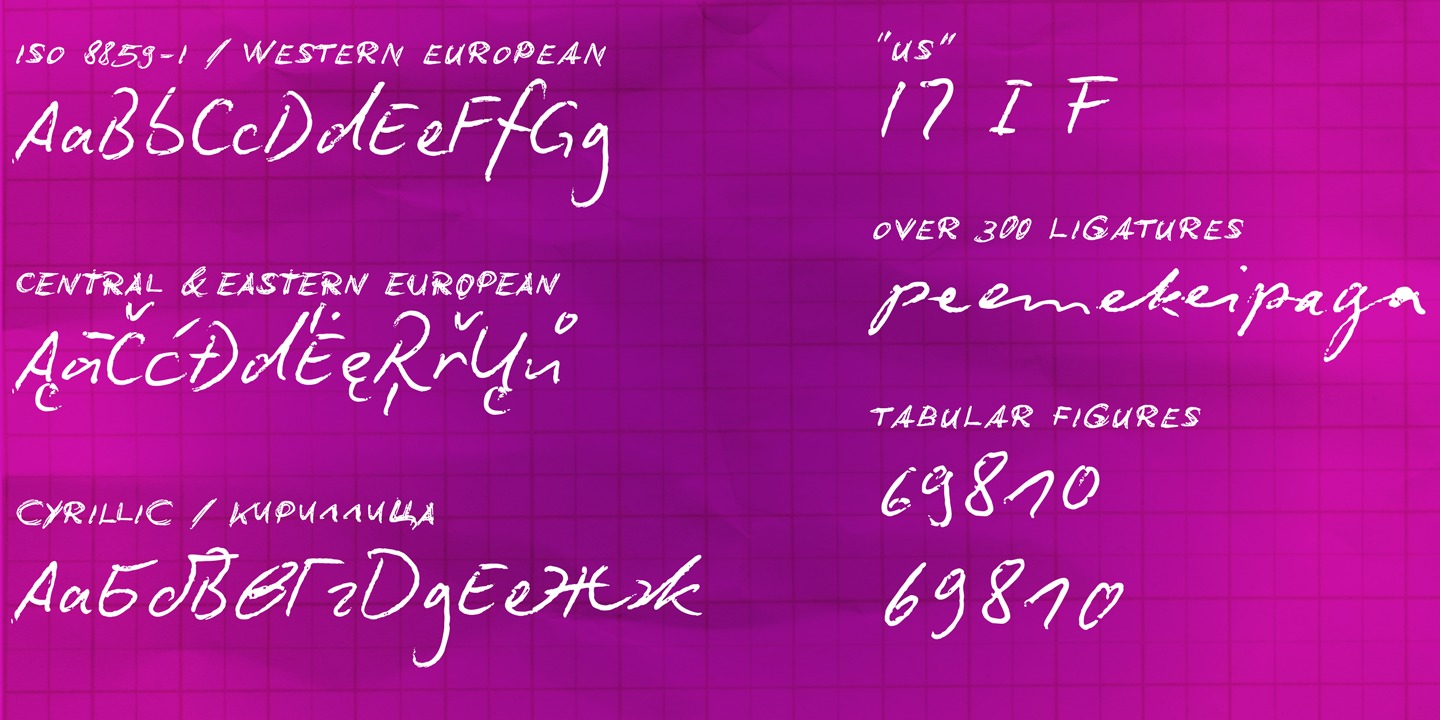 ISO 8859-1 / WESTERN EUROPEAN
AaBbCcDdEeFfGg
CENTRAL & EASTERN EUROPEAN
ĄāČćĐďĖęŖřŲů
CYRILLIC / КИРИЛЛИЦА
АаБбВвГгДдЕеЖж
"US"
17 I F
OVER 300 LIGATURES
peemekeipaga
TABULAR FIGURES
69810
69810